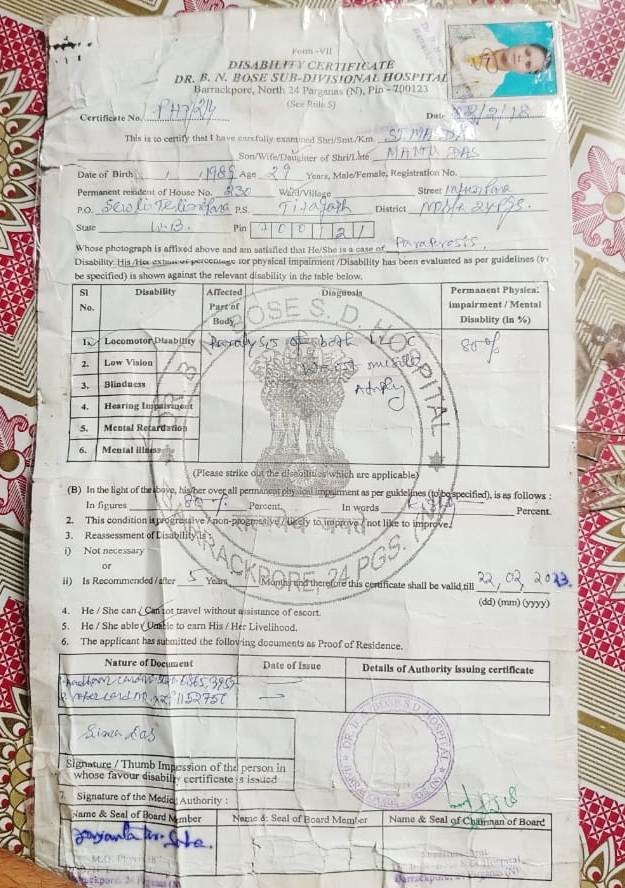 Form -VII
DISABILITY CERTIFICATE
DR. B. N. BOSE SUB-DIVISIONAL HOSPITAL
Barrackpore, North 24 Parganas (N), Pin - 700123
(See Rule 5)
Certificate No. PH7/24 Date 2/18
This is to certify that I have carefully examined Shri/Smt./Km. SIMA DAS
Son/Wife/Daughter of Shri/Late MANTU DAS
Date of Birth 1989 Age 29 Years, Male/Female, Registration No.
Permanent resident of House No. 230 Ward/Village Street
P.O. P.S. Titagarh District
State W.B. Pin 700121
Whose photograph is affixed above and am satisfied that He/She is a case of
Disability. His /Her extent of percentage for physical impairment /Disability has been evaluated as per guidelines (to
be specified) is shown against the relevant disability in the table below.
Sl No. Disability Affected Part of Body Diagnosis Permanent Physical impairment / Mental Disablity (in %)
1. Locomotor Disability of both 80%
2. Low Vision
3. Blindness
4. Hearing Impairment
5. Mental Retardation
6. Mental illness
(Please strike out the disabilities which are applicable)
(B) In the light of the above, his/her over all permanent physical impairment as per guidelines (to be specified), is as follows :
In figures 80% Percent. In words Percent.
2. This condition is progressive / non-progressive / likely to improve / not like to improve.
3. Reassessment of Disability is :
i) Not necessary
or
ii) Is Recommended / after 5 Years Months and therefore this certificate shall be valid till 22, 02, 2023.
(dd) (mm) (yyyy)
4. He / She can / Can not travel without assistance of escort.
5. He / She able / Unable to earn His / Her Livelihood.
6. The applicant has submitted the following documents as Proof of Residence.
Nature of Document Date of Issue Details of Authority issuing certificate
Sima Das
Signature / Thumb Impession of the person in
whose favour disabilty certificate is issued
7. Signature of the Medical Authority :
Name & Seal of Board Member Name & Seal of Board Member Name & Seal of Chairman of Board